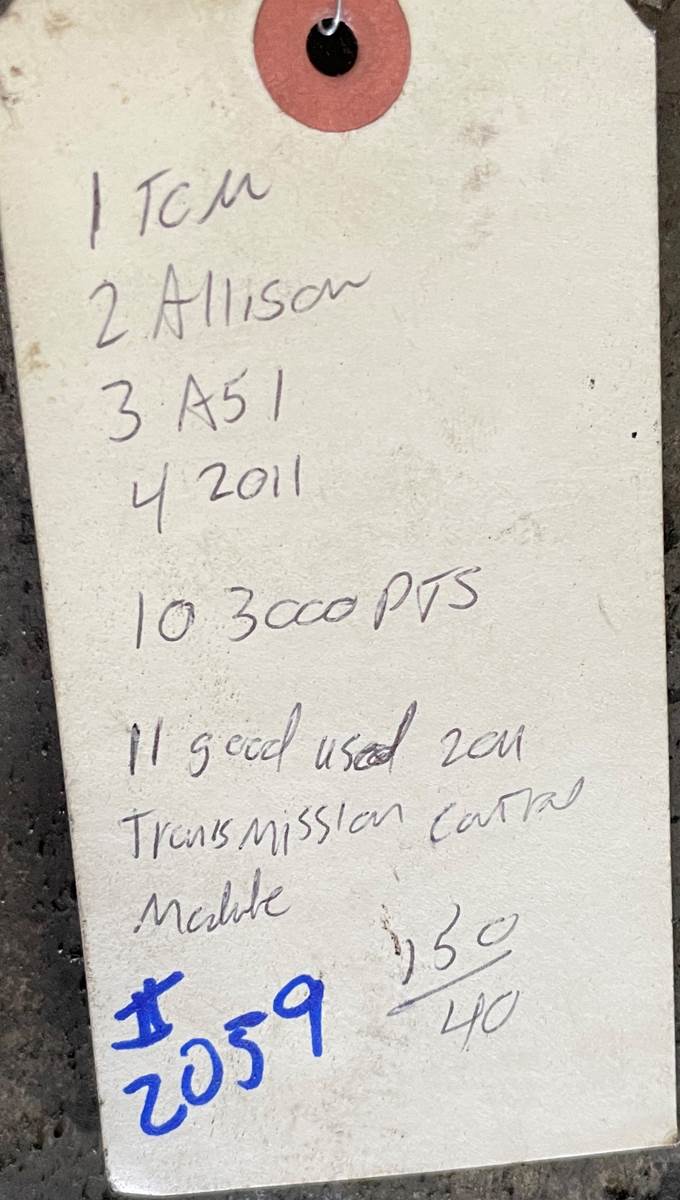 1 TCM
2 Allison
3 A51
4 2011
10 3000 PTS
11 good used 2011
Transmission Control
Module
150
40
#
2059